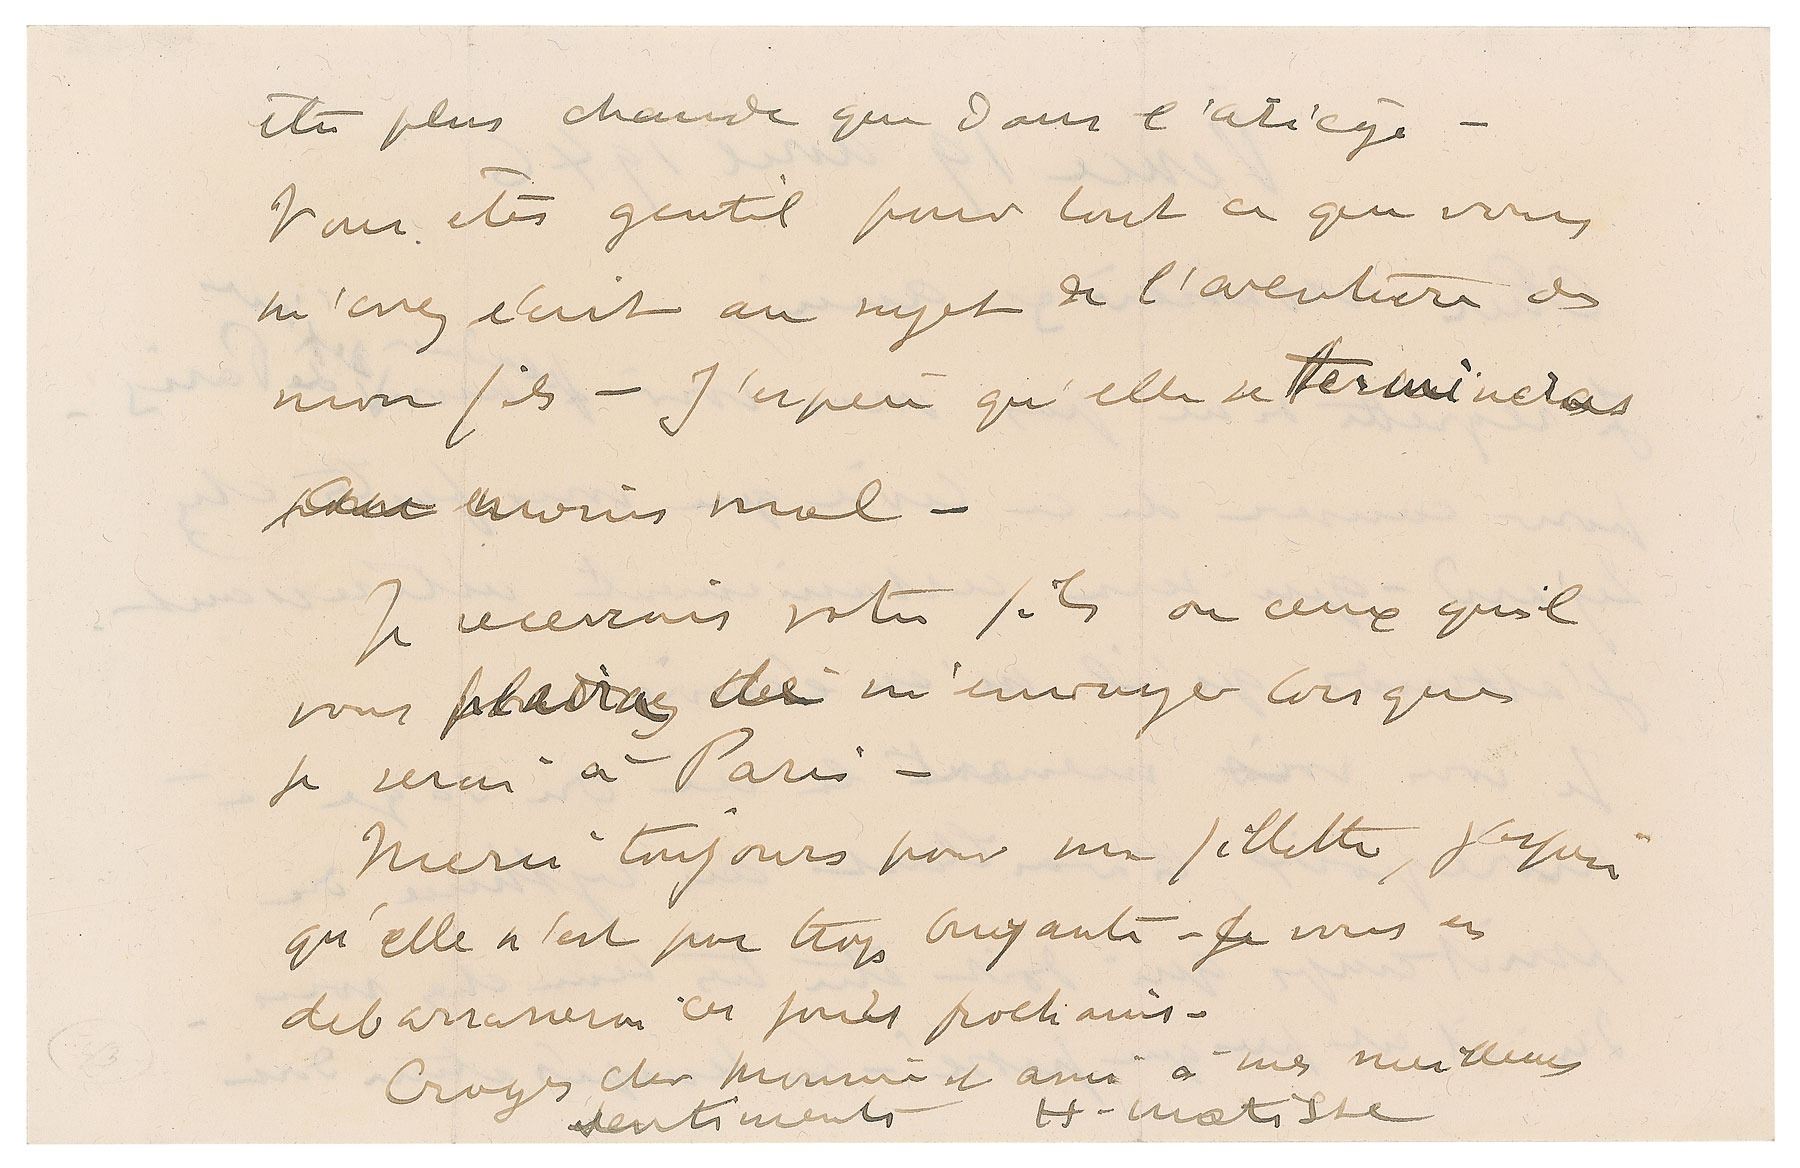 être plus chaude que dans l'ariège –
Vous êtes gentil pour tout ce que vous
m'avez écrit au sujet de l'aventure de
mon fils – J'espère qu'elle se terminera
moins mal –
Je recevrais votre fils ou ceux qu'il
vous plaira de m'envoyer lorsque
je serai à Paris –
Merci toujours pour ma fillette, j'espère
qu'elle n'est pas trop – Je vous en
debarrasserai ces jours prochains –
Croyez cher Monsieur et ami à mes meilleurs
sentiments H-matisse